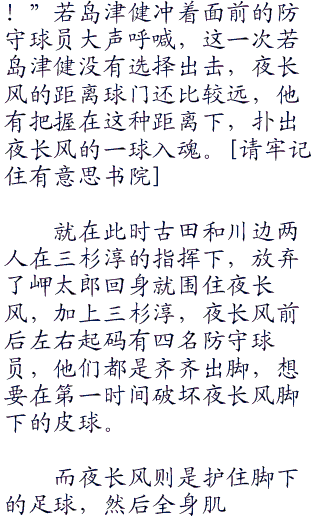 ！”若岛津健冲着面前的防
守球员大声呼喊，这一次若
岛津健没有选择出去，夜长
风的距离球门还比较远，他
有把握在这种距离下，扑出
夜长风的一球入魂。[请牢记
住有意思书院]
就在此时古田和川边两
人在三杉淳的指挥下，放弃
了岬太郎回身就围住夜长
风，加上三杉淳，夜长风前
后左右起码有四名防守球
员，他们都是齐齐出脚，想
要在第一时间破坏夜长风脚
下的皮球。
而夜长风则是护住脚下
的足球，然后全身肌